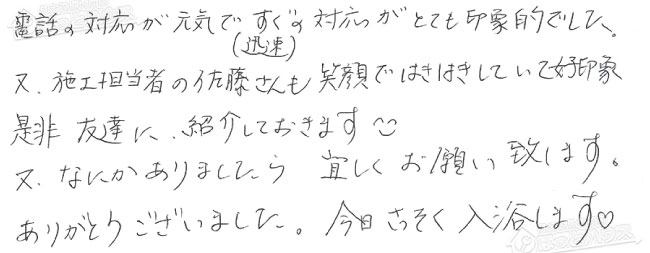 電話の対応が元気ですぐの対応がとても印象的でした。
(迅速)
又、施工担当者の佐藤さんも笑顔ではきはきしていて好印象
是非 友達に、紹介しておきます
又、なにかありましたら 宜しくお願い致します。
ありがとうございました。今日さっそく入浴します♡